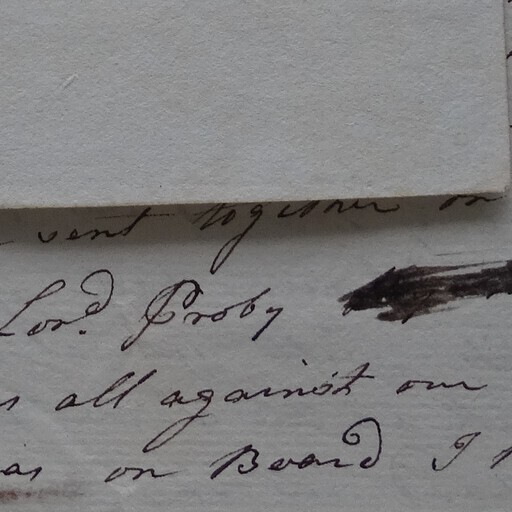 sent together on
Lord. Proby
all against our
on Board I